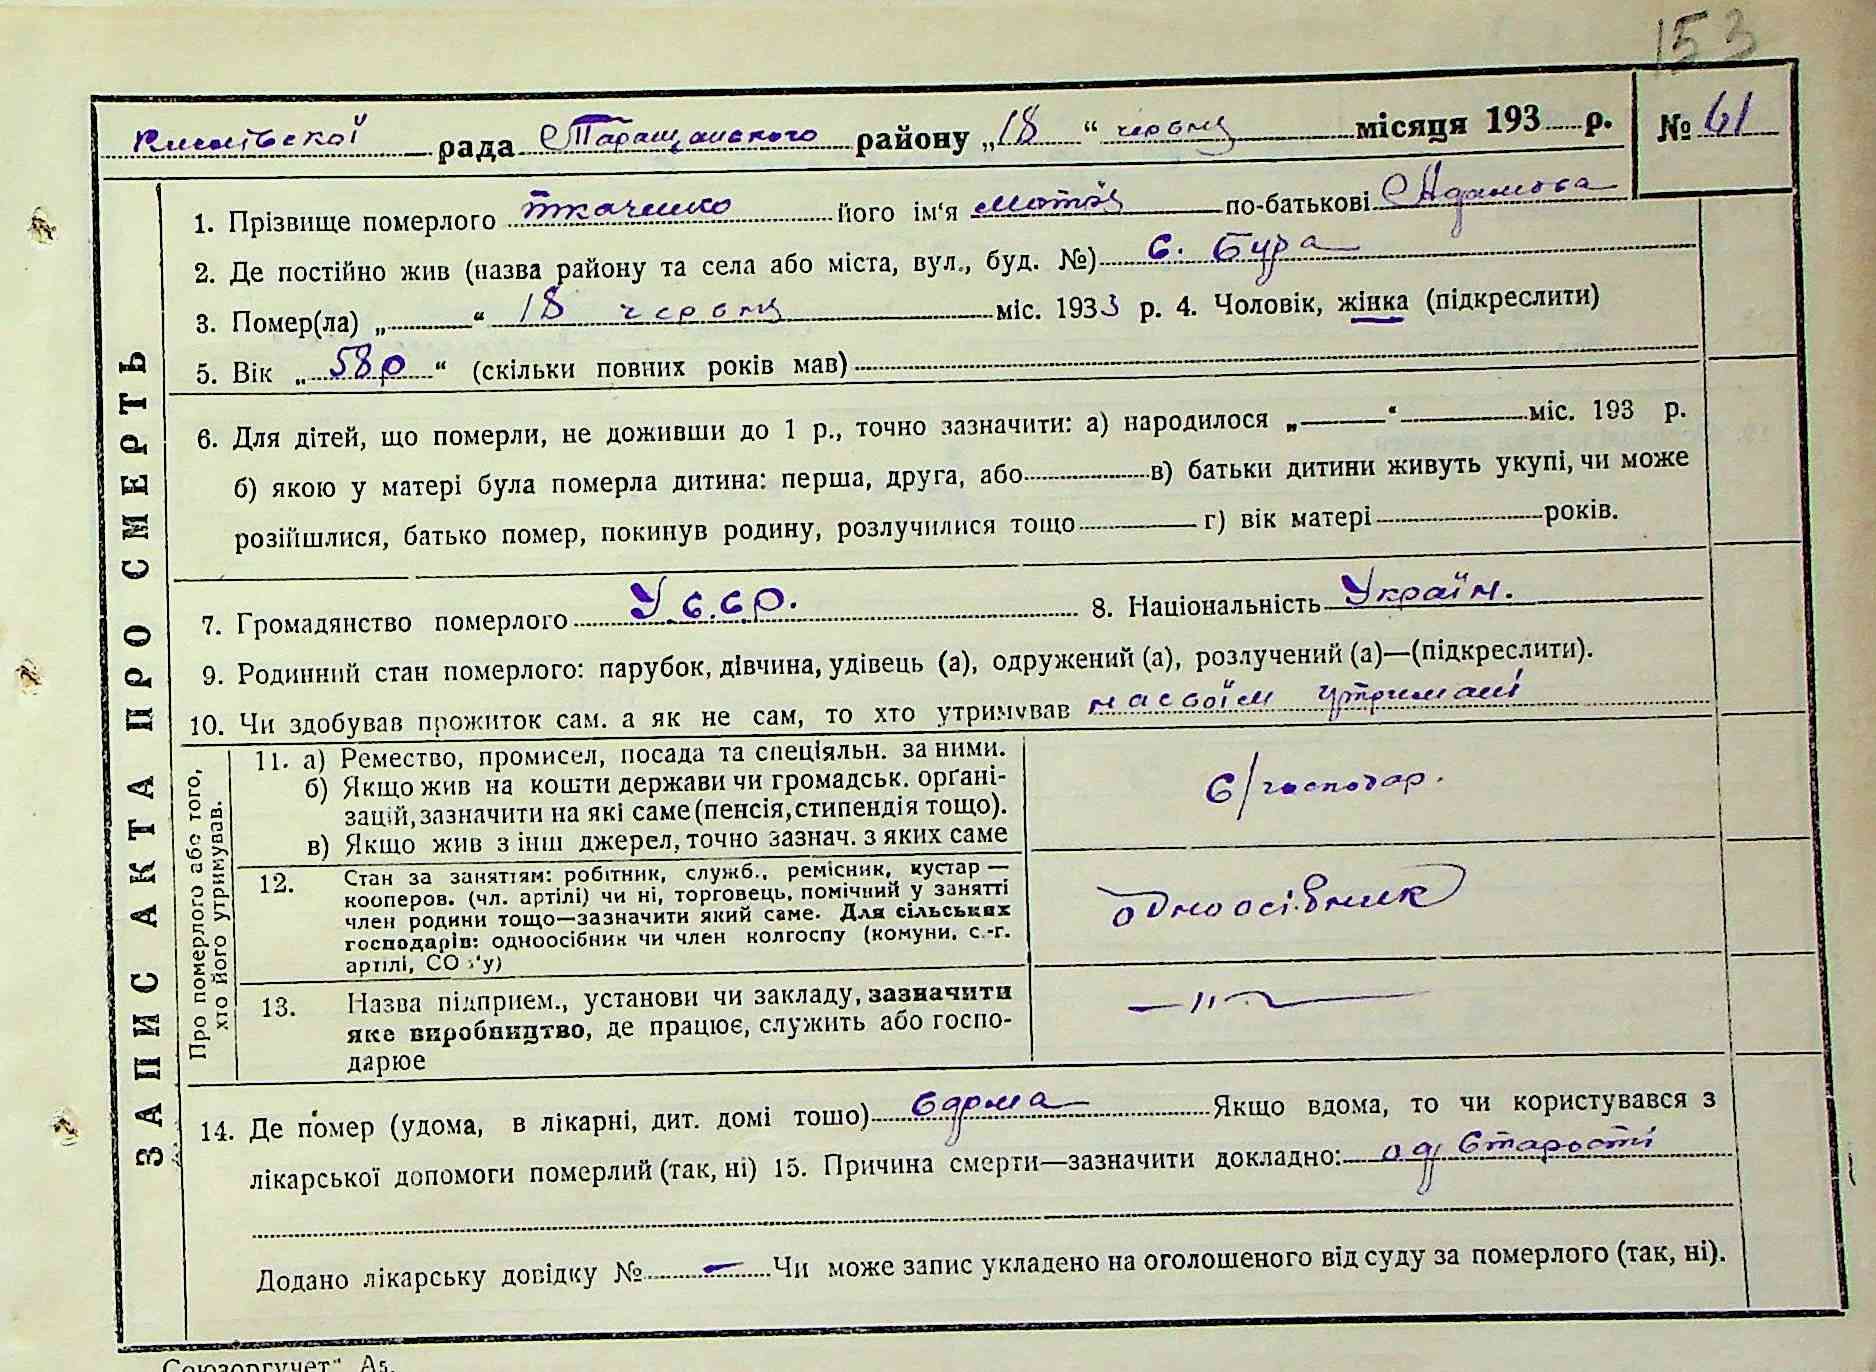 153
рада Таращанского району „18“ червня місяця 193 р. № 61
ЗАПИС АКТА ПРО СМЕРТЬ
1. Прізвище померлого Ткаченко його ім'я по-батькові Адамова
2. Де постійно жив (назва району та села або міста, вул., буд. №) с. Бура
3. Помер(ла) „ “ 18 червня міс. 1933 р. 4. Чоловік, жінка (підкреслити)
5. Вік „58р“ (скільки повних років мав)
6. Для дітей, що померли, не доживши до 1 р., точно зазначити: а) народилося „—“— міс. 193 р.
б) якою у матері була померла дитина: перша, друга, або в) батьки дитини живуть укупі, чи може
розійшлися, батько помер, покинув родину, розлучилися тощо г) вік матері років.
7. Громадянство померлого У.С.С.р. 8. Національність Україн.
9. Родинний стан померлого: парубок, дівчина, удівець (а), одружений (а), розлучений (а)—(підкреслити).
10. Чи здобував прожиток сам. а як не сам, то хто утримував на своїм утримані
Про померлого або того, хто його утримував.
11. а) Ремество, промисел, посада та спеціяльн. за ними.
б) Якщо жив на кошти держави чи громадськ. органі-
зацій, зазначити на які саме (пенсія, стипендія тощо).
в) Якщо жив з інш джерел, точно зазнач. з яких саме
с/господар.
12. Стан за занятіям: робітник, служб., ремісник, кустар —
кооперов. (чл. артілі) чи ні, торговець, помічний у занятті
член родини тощо—зазначити який саме. Для сільських
господарів: одноосібник чи член колгоспу (комуни, с.-г.
артілі, СО 'у)
одноосібник
13. Назва підприєм., установи чи закладу, зазначити
яке виробництво, де працює, служить або госпо-
дарює
—"—
14. Де помер (удома, в лікарні, дит. домі тошо) вдома Якщо вдома, то чи користувався з
лікарської допомоги померлий (так, ні) 15. Причина смерти—зазначити докладно: од старости
Додано лікарську довідку № — Чи може запис укладено на оголошеного від суду за померлого (так, ні).
Союзоргучет" А5.